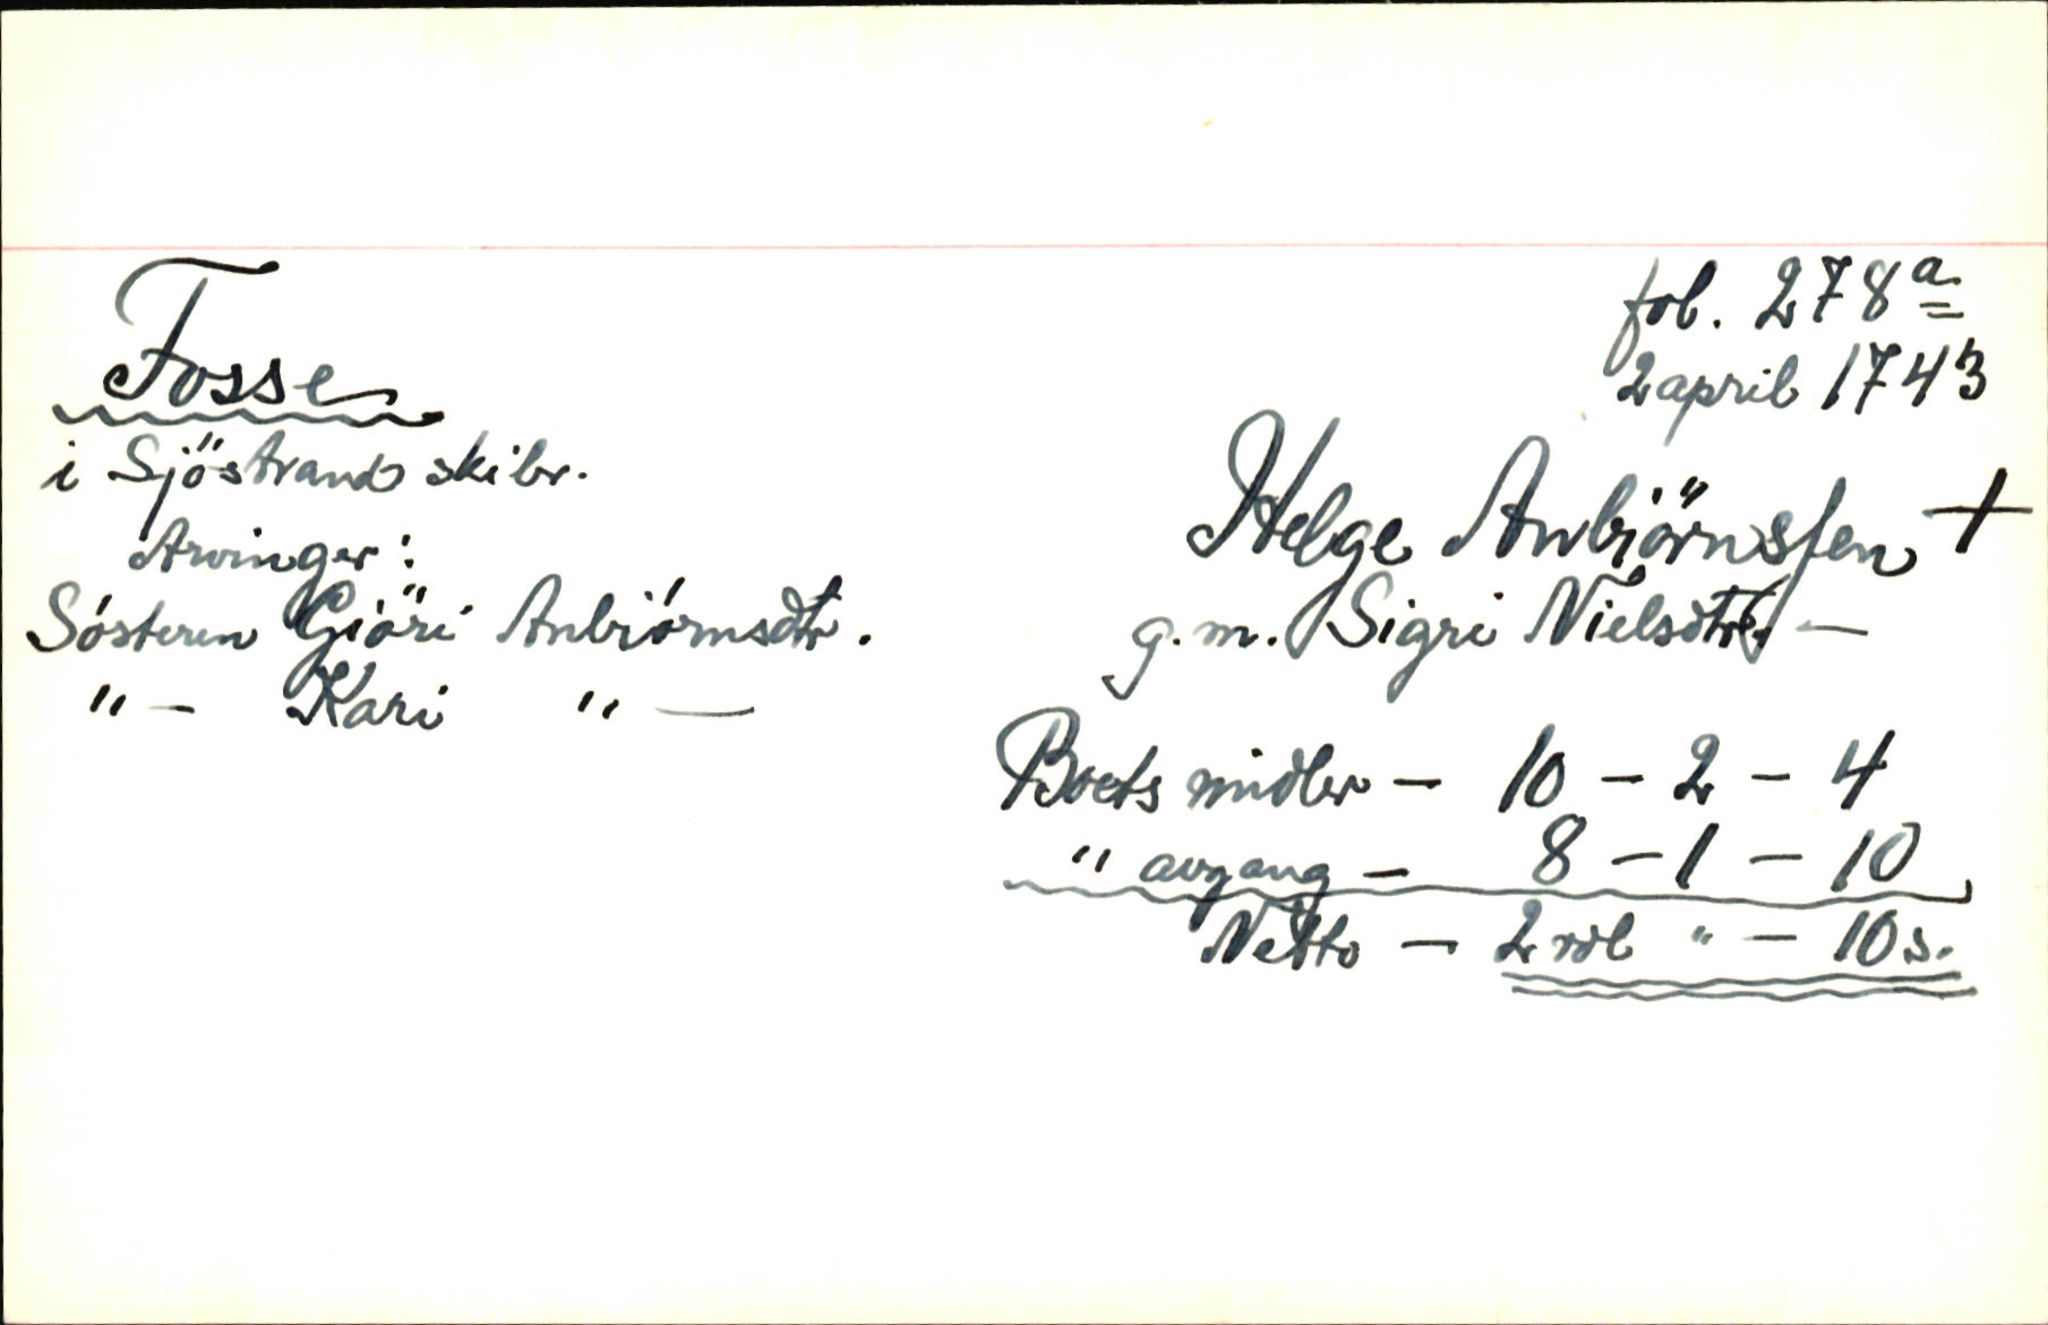 fol. 278a
2 april 1743
Fosse
i Sjöstrand skibr.
Helge Anbiörnsfen +
Arvinger:
g. m. Sigri Nielsdtr. —
Sósteren Giöri Anbiórnsdtr.
" — Kari " —
Boets midler — 10 — 2 — 4
" avgang — 8 — 1 — 10
Netto — 2 rdl " — 10 s.